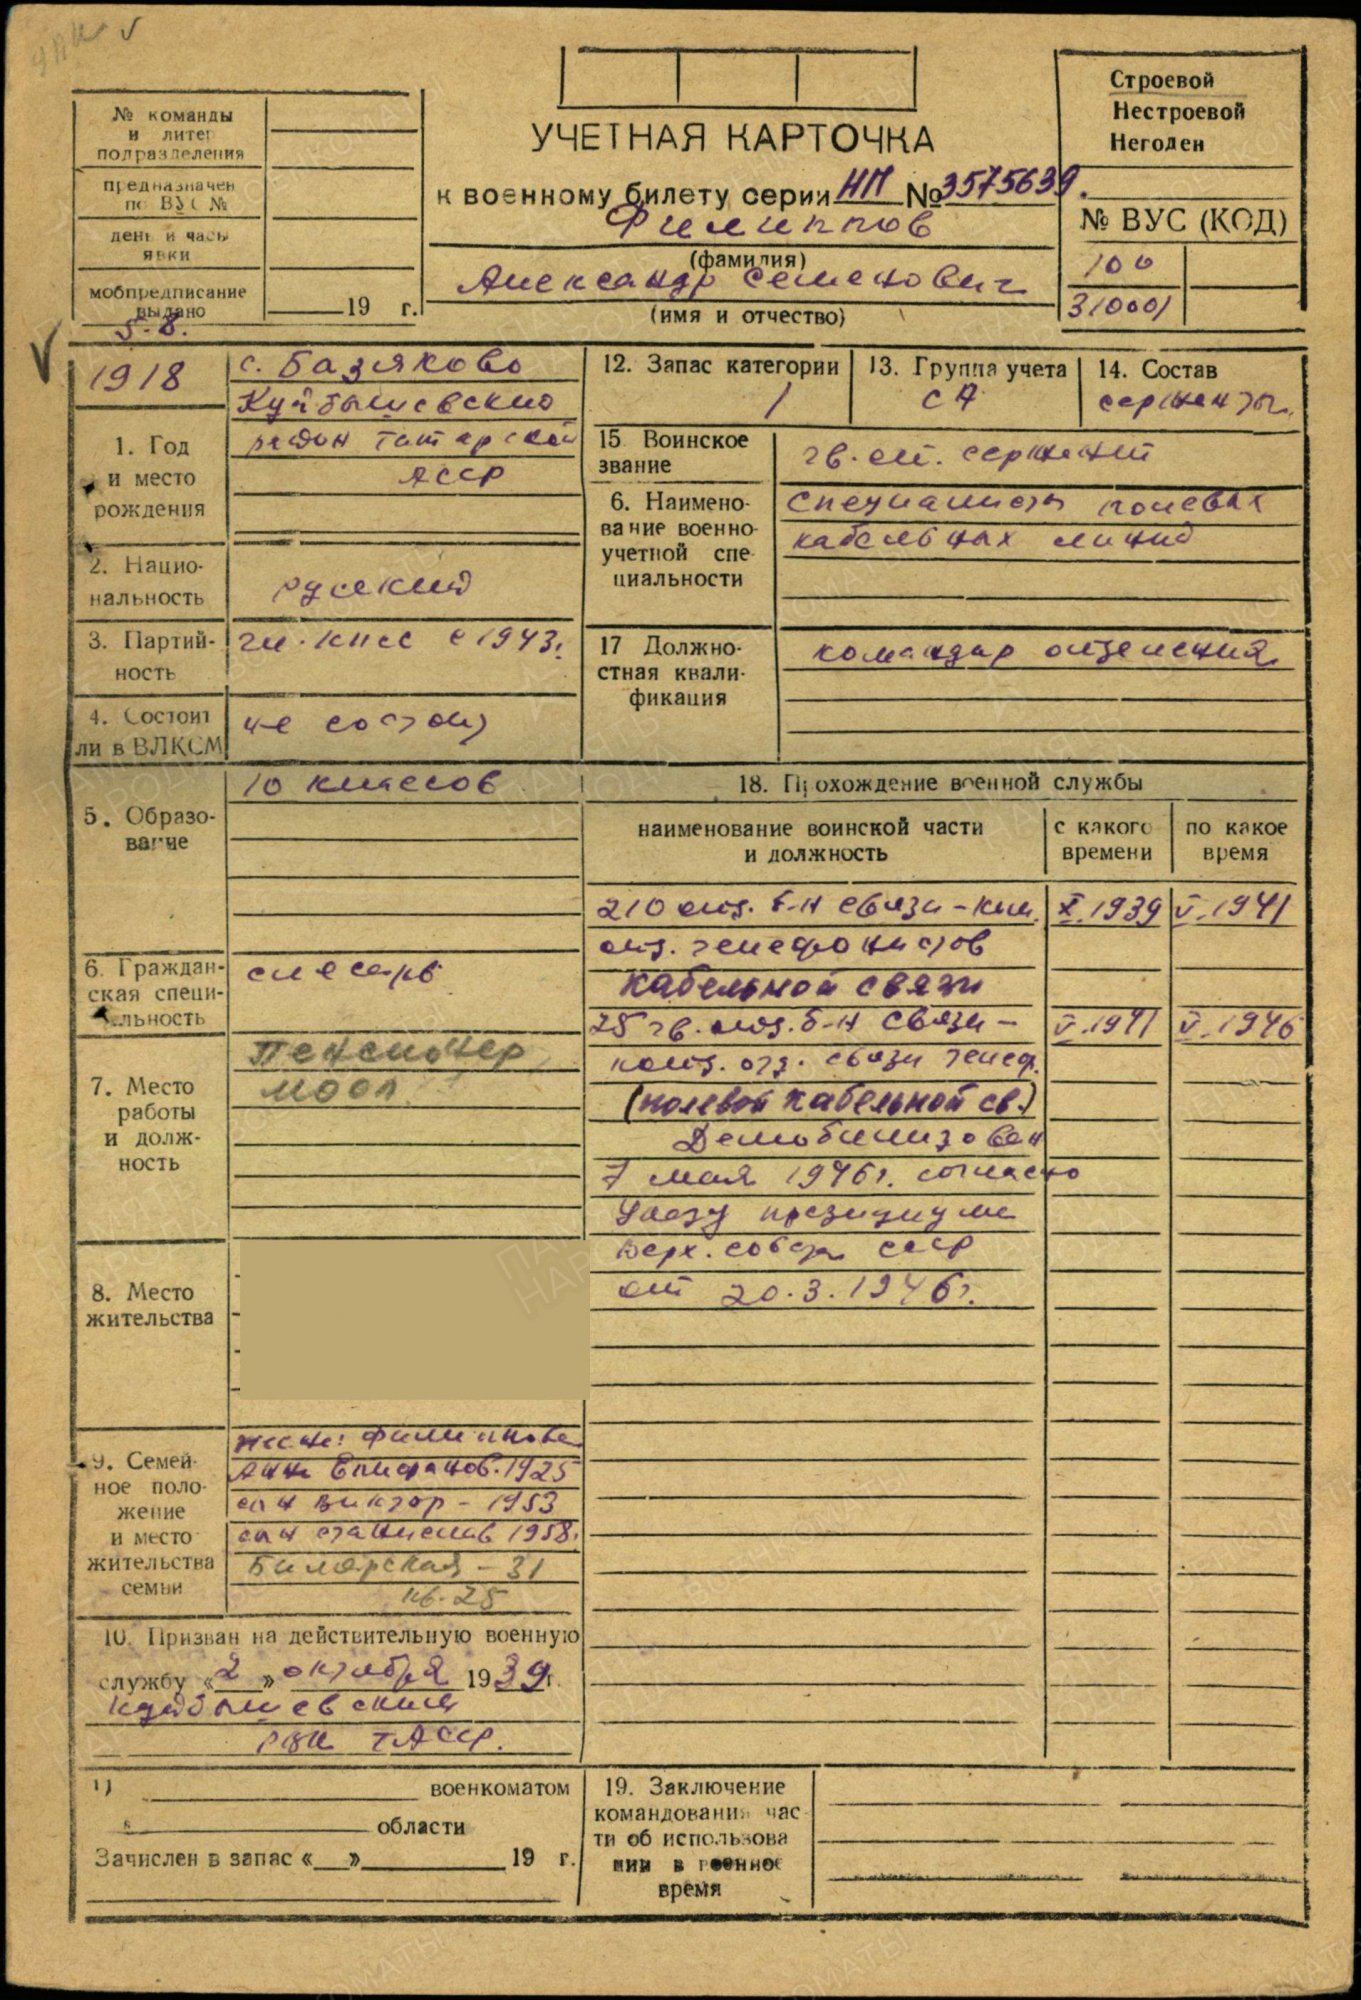 Строевой
Нестроевой
Негоден
№ команды
и литер
подразделения
предназначен
по ВУС №
день и часы
явки
мобпредписание
выдано
19 г.
5-8.
УЧЕТНАЯ КАРТОЧКА
к военному билету серии НП № 3575639.
Филиппов
(фамилия)
Александр Семенович
(имя и отчество)
№ ВУС (КОД)
100
31000
1918
1. Год
и место
рождения
с. Базяково
Куйбышевский
район Татарской
АССР
2. Нацио-
нальность
русский
3. Партий-
ность
чл. КПСС с 1943г.
4. Состоит
ли в ВЛКСМ
не состоит
5. Образо-
вание
10 классов
6. Граждан-
ская специ-
альность
слесарь
7. Место
работы
и долж-
ность
Пенсионер,
моол
8. Место
жительства
9. Семей-
ное поло-
жение
и место
жительства
семьи
жена: Филиппова
Анна Епифанов. 1925
сын Виктор - 1953
сын Станислав 1958г.
Билярская - 31
кв. 25
10. Призван на действительную военную
службу «2» октября 1939г.
Куйбышевским
РВК ТАССР.
11) военкоматом
области
Зачислен в запас « » 19 г.
12. Запас категории
1
13. Группа учета
СА
14. Состав
сержанты
15 Воинское
звание
гв. ст. сержант
6. Наимено-
вание военно-
учетной спе-
циальности
Специалисты полевых
кабельных линий
17 Должно-
стная квали-
фикация
командир отделения
18. Прохождение военной службы
наименование воинской части
и должность
с какого
времени
по какое
время
210 отд. б-н связи - ком. X.1939 V.1941
отд. телефонистов
кабельной связи
25 гв. отд. б-н связи - V.1941 V.1946
ком. отд. связи телеф.
(полевой кабельной св.)
Демобилизован
7 мая 1946г. согласно
Указу президиума
Верх. совета СССР
от 20.3.1946г.
19. Заключение
командования час-
ти об использова
нии в военное
время